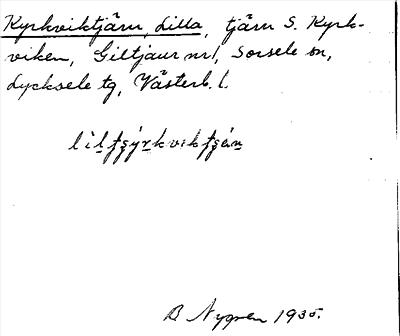 Kyrkviktjärn, Lilla, tjärn S. Kyrk-
viken, Giltjaur nr 1, Sorsele sn,
Lycksele tg, Västerb. l.
B Nygren 1935.